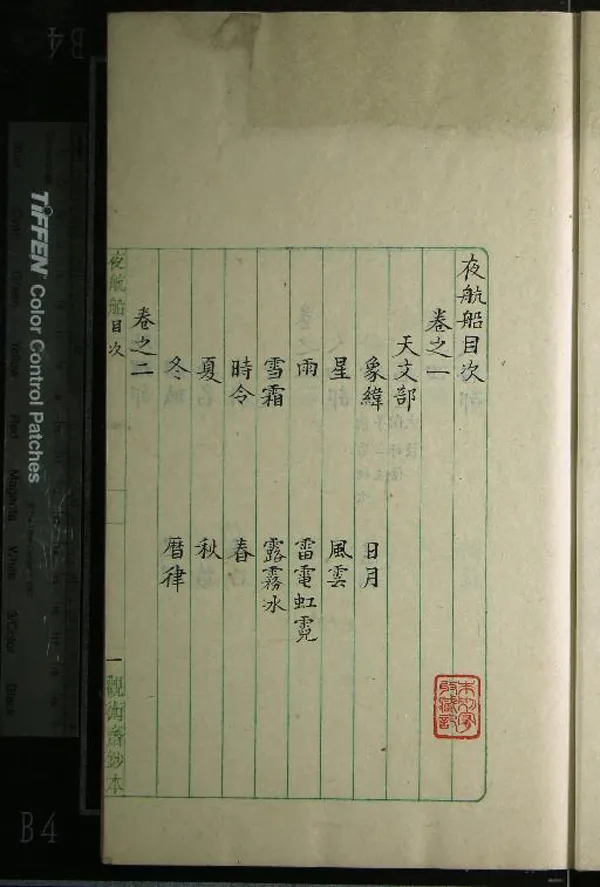 夜航船目次
卷之一
天文部
象緯 日月
星 風雲
雨 雷電虹霓
雪霜 露霧冰
時令 春
夏 秋
冬 曆律
卷之二
夜航船目次
一
觀術齋鈔本
TIFFEN Color Control Patches
B4
B4